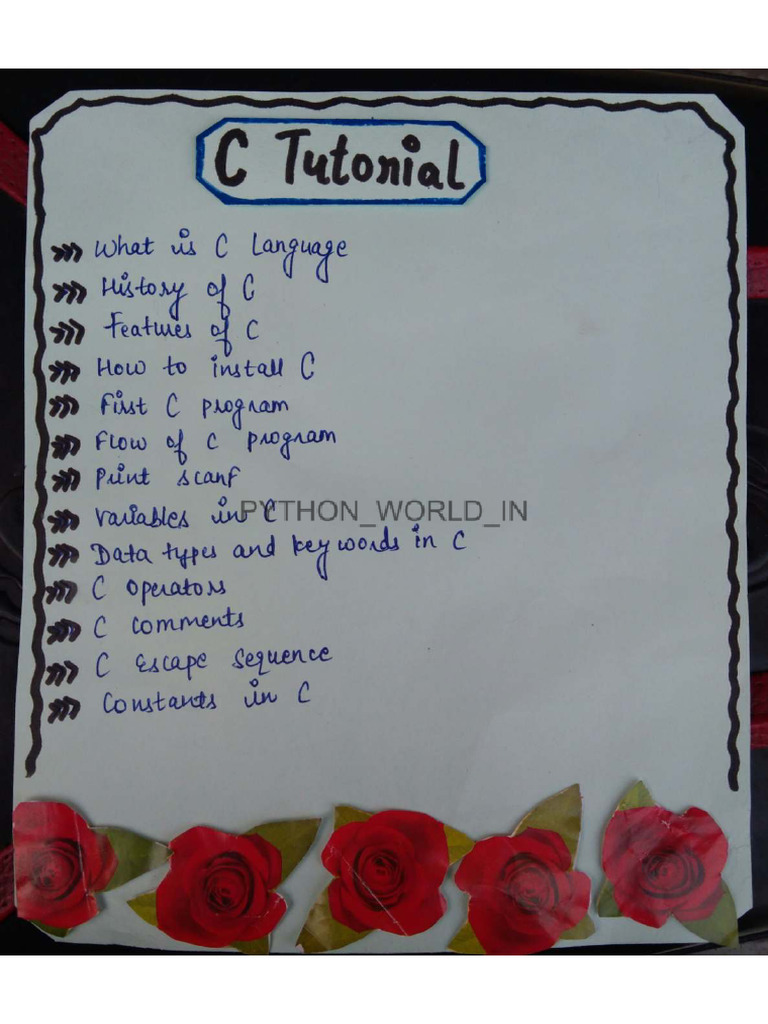 C Tutorial
What is C Language
History of C
Features of C
How to install C
First C program
Flow of C program
Print scanf
Variables in C
PYTHON_WORLD_IN
Data types and keywords in C
C operators
C comments
C Escape Sequence
Constants in C